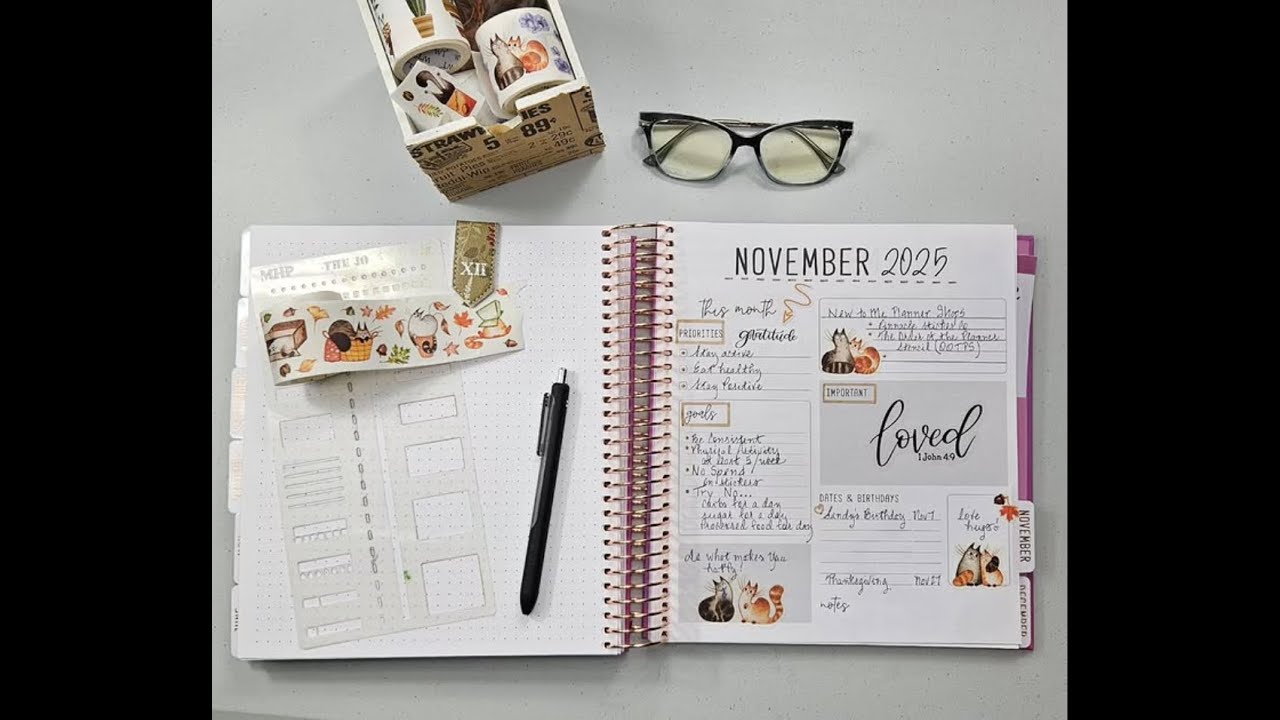 STRAWBERRIES
5 89¢
29¢
2 49¢
Fruit Pies
MHP
XII
NOVEMBER 2025
this month
PRIORITIES
gratitude
Stay active
Eat healthy
Stay Positive
goals
Be Consistent
Physical Activity
at least 3/week
No Spend
on stickers
Try No...
carbs for a day
sugar for a day
Processed food for day
do what makes you
happy!
New to Me Planner Shops
Pinnacle Sticker Co
The Order of the Planner
Stencil (OOTPS)
IMPORTANT
loved
1 John 4:9
DATES & BIRTHDAYS
Sandy's Birthday Nov 7
Thanksgiving Nov 27
notes
love
hugs!
NOVEMBER
DECEMBER